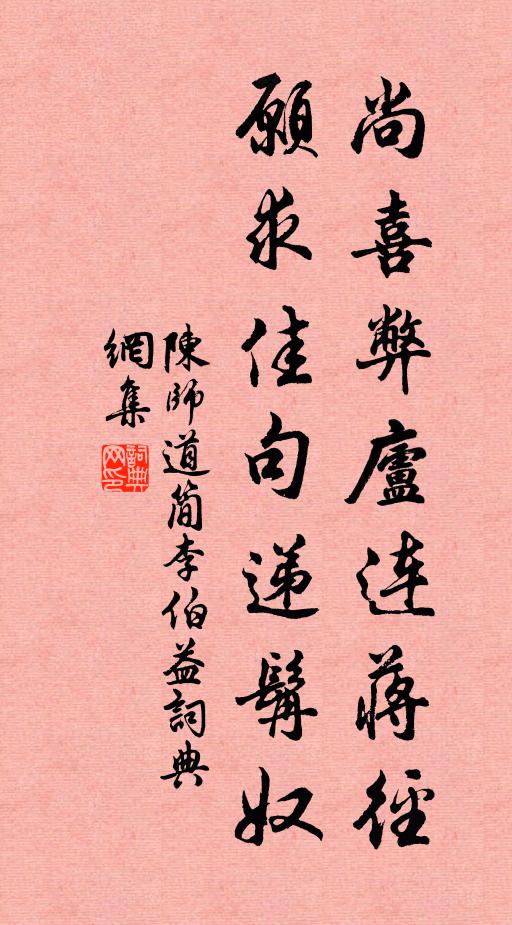 尚喜弊廬連蔣徑
願求佳句遞髯奴
陳師道簡李伯益詞典
網集
詞典網印